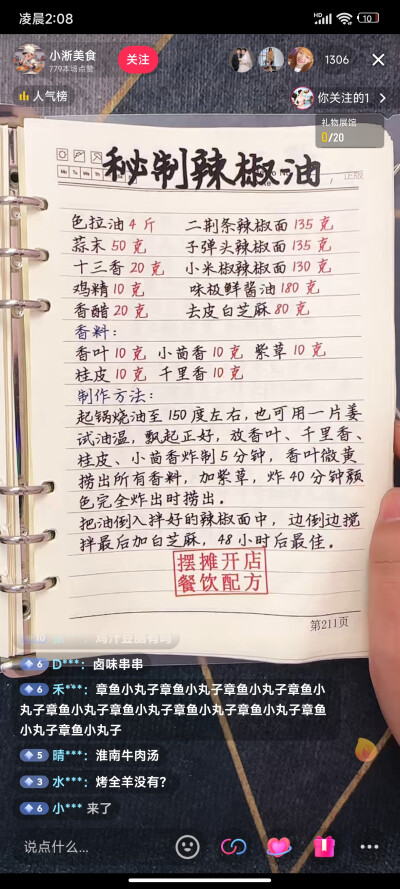 凌晨2:08
HD
10
小淅美食
779本场点赞
关注
1306
人气榜
你关注的1
礼物展馆
0/20
秘制辣椒油
色拉油4斤 二荆条辣椒面135克
蒜末50克 子弹头辣椒面135克
十三香20克 小米椒辣椒面130克
鸡精10克 味极鲜酱油180克
香醋20克 去皮白芝麻80克
香料:
香叶10克 小茴香10克 紫草10克
桂皮10克 千里香10克
制作方法:
起锅烧油至150度左右,也可用一片姜
试油温,飘起正好,放香叶、千里香、
桂皮、小茴香炸制5分钟,香叶微黄
捞出所有香料,加紫草,炸40分钟颜
色完全炸出时捞出。
把油倒入拌好的辣椒面中,边倒边搅
拌最后加白芝麻,48小时后最佳。
摆摊开店
餐饮配方
第211页
6 D***: 卤味串串
6 禾***: 章鱼小丸子章鱼小丸子章鱼小丸子章鱼小
丸子章鱼小丸子章鱼小丸子章鱼小丸子章鱼
小丸子章鱼小丸子
5 晴***: 淮南牛肉汤
3 水***: 烤全羊没有?
6 小*** 来了
说点什么...